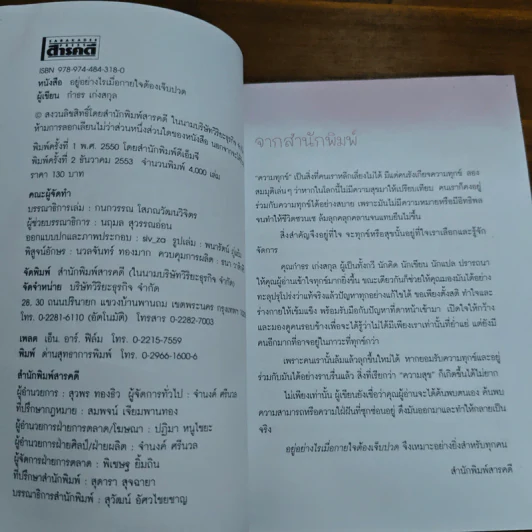 สารคดี
ISBN 978-974-484-318-0
หนังสือ อยู่อย่างไรเมื่อกายใจต้องเจ็บปวด
ผู้เขียน กำธร เก่งสกุล
© สงวนลิขสิทธิ์โดยสำนักพิมพ์สารคดี ในนามบริษัทวิริยะธุรกิจ
ห้ามการลอกเลียนไม่ว่าส่วนหนึ่งส่วนใดของหนังสือ
พิมพ์ครั้งที่ 1 พ.ศ. 2550 โดยสำนักพิมพ์ดีเอ็มจี
พิมพ์ครั้งที่ 2 ธันวาคม 2553 จำนวนพิมพ์ 4,000 เล่ม
ราคา 130 บาท
คณะผู้จัดทำ
บรรณาธิการเล่ม : กนกวรรณ โสภณวัฒนวิจิตร
ผู้ช่วยบรรณาธิการ : นฤมล สุวรรณอ่อน
ออกแบบปกและภาพประกอบ : siv_za รูปเล่ม : พนารัตน์
พิสูจน์อักษร : นวลจันทร์ ทองมาก ควบคุมการผลิต :
จัดพิมพ์ สำนักพิมพ์สารคดี (ในนามบริษัทวิริยะธุรกิจ จำกัด)
จัดจำหน่าย บริษัทวิริยะธุรกิจ จำกัด
28, 30 ถนนปรินายก แขวงบ้านพานถม เขตพระนคร กรุงเทพฯ
โทร. 0-2281-6110 (อัตโนมัติ) โทรสาร 0-2282-7003
เพลต เอ็น อาร์. ฟิล์ม โทร. 0-2215-7559
พิมพ์ ด่านสุทธาการพิมพ์ โทร. 0-2966-1600-6
สำนักพิมพ์สารคดี
ผู้อำนวยการ : สุวพร ทองธิว ผู้จัดการทั่วไป : จำนงค์ ศรีนวล
ที่ปรึกษากฎหมาย : สมพจน์ เจียมพานทอง
ผู้อำนวยการฝ่ายการตลาด/โฆษณา : ปฏิมา หนูไชยะ
ผู้อำนวยการฝ่ายศิลป์/ฝ่ายผลิต : จำนงค์ ศรีนวล
ผู้จัดการฝ่ายการตลาด : พิเชษฐ ยิ้มถิน
ที่ปรึกษาสำนักพิมพ์ : สุดารา สุจฉายา
บรรณาธิการสำนักพิมพ์ : สุวัฒน์ อัศวไชยชาญ
จากสำนักพิมพ์
"ความทุกข์" เป็นสิ่งที่คนเราหลีกเลี่ยงไม่ได้ มีแต่คนรังเกียจความทุกข์ ลอง
สมมุติเล่นๆ ว่าหากในโลกนี้ไม่มีความสุขมาให้เปรียบเทียบ คนเราก็คงอยู่
ร่วมกับความทุกข์ได้อย่างสบาย เพราะมันไม่มีความหมายหรือมีอิทธิพล
จนทำให้ชีวิตซวนเซ ล้มลุกคลุกคลานจนแทบยืนไม่ขึ้น
สิ่งสำคัญจึงอยู่ที่ใจ จะทุกข์หรือสุขนั้นอยู่ที่ใจเราเลือกและรู้จัก
จัดการ
คุณกำธร เก่งสกุล ผู้เป็นทั้งกวี นักคิด นักเขียน นักแปล ปรารถนา
ให้คุณผู้อ่านเข้าใจทุกข์มากยิ่งขึ้น ขณะเดียวกันก็ช่วยให้คุณมองมันได้อย่าง
ทะลุปรุโปร่งว่าแท้จริงแล้วปัญหาทุกอย่างแก้ไขได้ ขอเพียงตั้งสติ ทำใจและ
ร่างกายให้เข้มแข็ง พร้อมรับมือกับปัญหาที่ดาหน้าเข้ามา เปิดใจให้กว้าง
และมองดูคนรอบข้างเพื่อจะได้รู้ว่าไม่ได้มีเพียงเราเท่านั้นที่ย่ำแย่ แต่ยังมี
คนอีกมากที่อาจอยู่ในภาวะที่ทุกข์กว่า
เพราะคนเรานั้นล้มแล้วลุกขึ้นใหม่ได้ หากยอมรับความทุกข์และอยู่
ร่วมกับมันได้อย่างราบรื่นแล้ว สิ่งที่เรียกว่า "ความสุข" ก็เกิดขึ้นได้ไม่ยาก
ไม่เพียงเท่านั้น ผู้เขียนยังเชื่อว่าคุณผู้อ่านจะได้ค้นพบตนเอง ค้นพบ
ความสามารถหรือความใฝ่ฝันที่ซุกซ่อนอยู่ ดึงมันออกมาและทำให้กลายเป็น
จริง
อยู่อย่างไรเมื่อกายใจต้องเจ็บปวด จึงเหมาะอย่างยิ่งสำหรับทุกคน
สำนักพิมพ์สารคดี